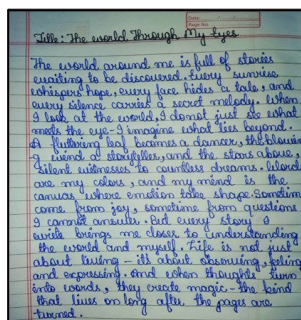 Date
Page No.
Title: The world Through My Eyes
The world around me is full of stories
waiting to be discovered. Every sunrise
whispers hope, every face hides a tale, and
every silence carries a secret melody. When
I look at the world, I do not just see what
meets the eye - I imagine what lies beyond.
A fluttering leaf becomes a dancer, the blowin
g wind a storyteller, and the stars above,
silent witnesses to countless dreams. Words
are my colors, and my mind is the
canvas where emotion take shape. Sometim
come from joy, sometime from questions
I cannot answer. But every story I
write brings me closer to understanding
the world and myself. Life is not just
about living - its about observing, feeling
and expressing. And when thoughts turn
into words, they create magic - the kind
that lives on long after the pages are
turned.